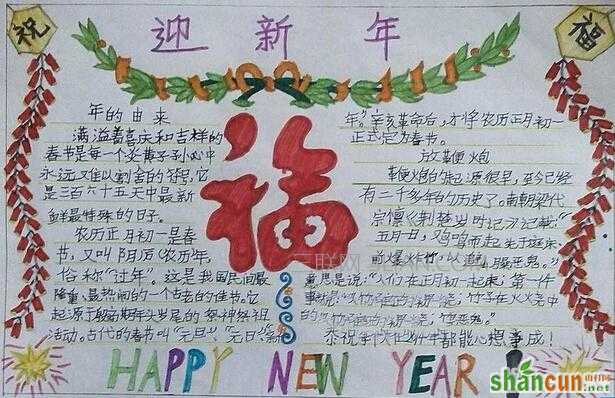 祝
迎新年
福
年的由来
满溢着喜庆和吉祥的
春节是每一个炎黄子孙心中
永远又难以割舍的
是三百六十五天中最新
鲜最特殊的日子。
农历正月初一是春
节，又叫阴历(农历)年,
俗称“过年”。这是我国民间最
隆重、最热闹的一个古老的佳节。它
起源于殷商时年头岁尾的祭神祭祖
活动。古代的春节叫“元旦”、“元日”、新
福
年”。辛亥革命后，才将农历正月初一
正式定为春节。
放鞭炮
鞭炮的起源很早，至今已经
有二千多年的历史了。南朝梁代
宗懔《荆楚岁时记》记载：
月一日，鸡鸣而起，先于庭
前爆竹，以恶鬼。”
意思是说：“人们在正月初一起来，第一件
事
恭祝都能心想事成！
HAPPY NEW YEAR!
shancun
山村网
.net